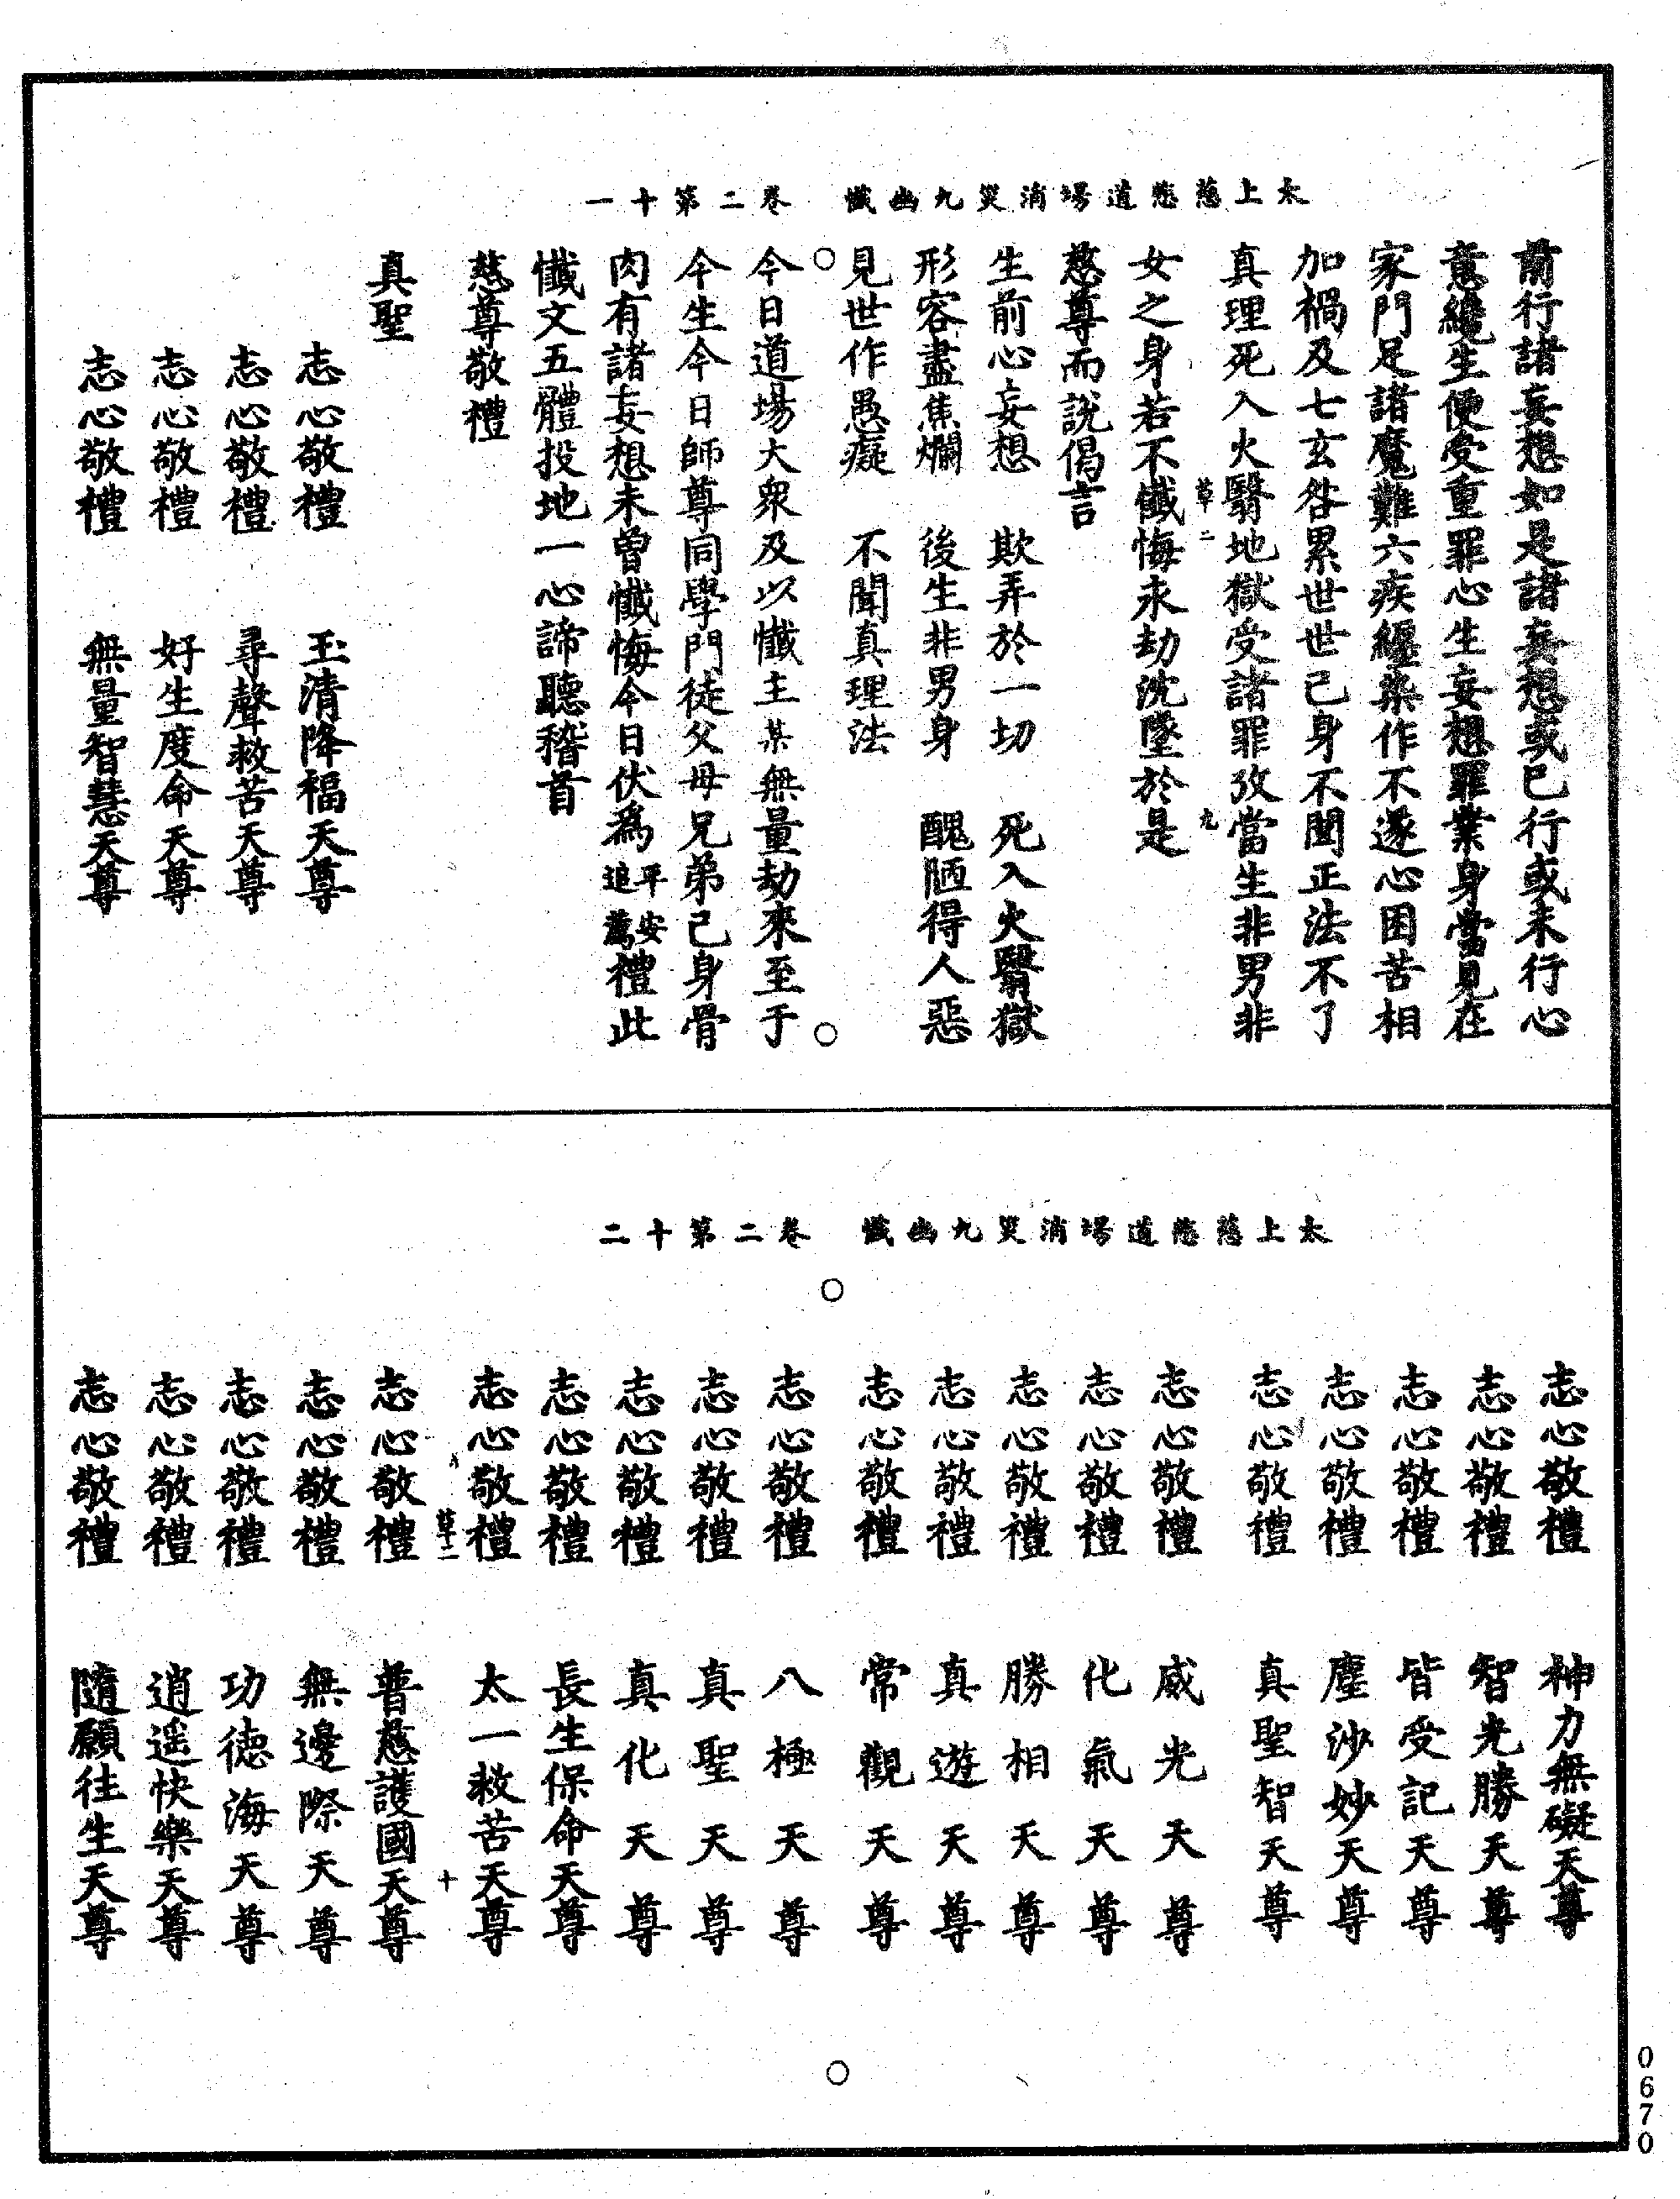 太上慈悲道場消災九幽懺　卷二第十一
前行諸妄想如是諸妄想或已行或未行心
意纔生便受重罪心生妄想罪業身當見在
家門足諸魔難六疾纏染作不遂心困苦相
加禍及七玄咎累世世己身不聞正法不了
真理死入火翳地獄受諸罪攷當生非男非
女之身若不懺悔永劫沈墜於是
草二
九
慈尊而說偈言
生前心妄想　欺弄於一切　死入火翳獄
形容盡焦爛　後生非男身　醜陋得人惡
見世作愚癡　不聞真理法
今日道場大衆及以懺主某無量劫來至于
今生今日師尊同學門徒父母兄弟己身骨
肉有諸妄想未曾懺悔今日伏爲平安追薦禮此
懺文五體投地一心諦聽稽首
慈尊敬禮
真聖
志心敬禮　玉清降福天尊
志心敬禮　尋聲救苦天尊
志心敬禮　好生度命天尊
志心敬禮　無量智慧天尊
太上慈悲道場消災九幽懺　卷二第十二
志心敬禮　神力無礙天尊
志心敬禮　智光勝天尊
志心敬禮　皆受記天尊
志心敬禮　塵沙妙天尊
志心敬禮　真聖智天尊
志心敬禮　威光天尊
志心敬禮　化氣天尊
志心敬禮　勝相天尊
志心敬禮　真遊天尊
志心敬禮　常觀天尊
志心敬禮　八極天尊
志心敬禮　真聖天尊
志心敬禮　真化天尊
志心敬禮　長生保命天尊
志心敬禮　太一救苦天尊
草二
十
志心敬禮　普慈護國天尊
志心敬禮　無邊際天尊
志心敬禮　功德海天尊
志心敬禮　逍遥快樂天尊
志心敬禮　隨願往生天尊
0670